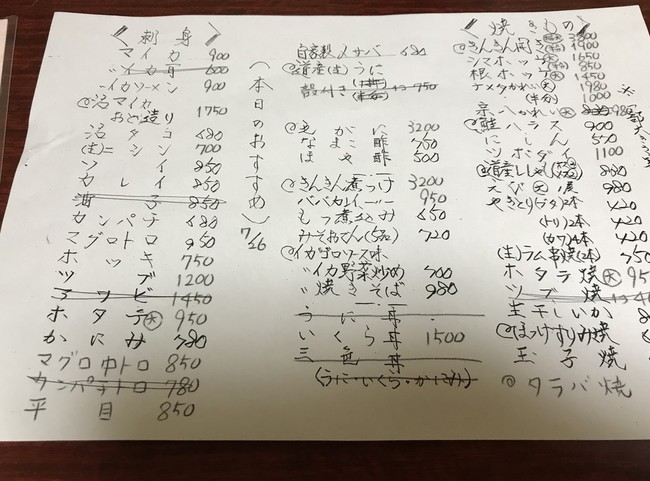 刺身
マイカ 900
〃イカ耳 600
〃イカソーメン 900
◎活マイカ
おどり造り 1750
活タコ 680
(生)ニシン 700
ソイ 850
カレイ 850
海子 850
カンパチ 680
マグロトロ 950
ホッキ 750
ツブ 1200
アワビ 1450
ホタテ(大) 950
かにみそ 780
マグロ中トロ 850
カンパチトロ 780
平目 850
(本日のおすすめ) 7/26
自家製〆サバ 680
◎道産(生)うに
殻付き
750
◎毛がに 3200
なまこ酢 750
ほや酢 500
◎きんきん煮つけ 3200
ババカレイ〃
もつ煮込み 650
みそおでん(5品) 720
◎イカゴロソース味
〃イカ野菜炒め 700
〃焼きそば 980
うに丼
いくら丼 1500
三色丼
(うに・いくら・かにみそ)
焼きもの
◎きんきん開き(特大) 3800
1900
シマホッケ(半物) 1650
根ホッケ(大) 850
1450
ナメタかれい(大) 1980
(半分) 1000
宗八かれい(大) 980
◎鮭ハラス 900
にしん
ツボダイ 1100
◎道産ししゃも
えび 980
やきとり(タン)2本 420
(トリ)2本 420
(カワ)4本 420
(生)ラム串焼(2本)
ホタテ焼(大) 95
ツブ焼
生干しいか
◎ほっけすりみ焼
玉子焼
◎タラバ焼